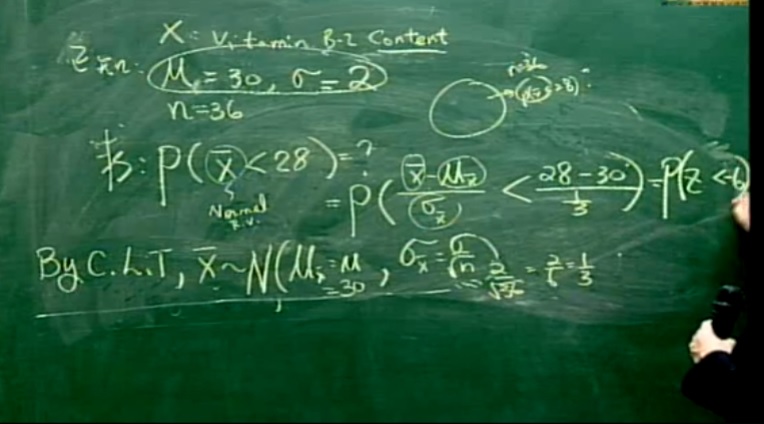 X: Vitamin B-2 Content
已知: μ = 30, σ = 2
n=36
n=36
求: P(x̄ < 28) = ?
Normal
r.v.
= P( (x̄ - μx̄)/σx̄ < (28-30)/(1/3) ) = P(Z < -6
By C.L.T, x̄ ~ N( μx̄ = μ = 30 , σx̄ = σ/√n = 2/√36 = 2/6 = 1/3